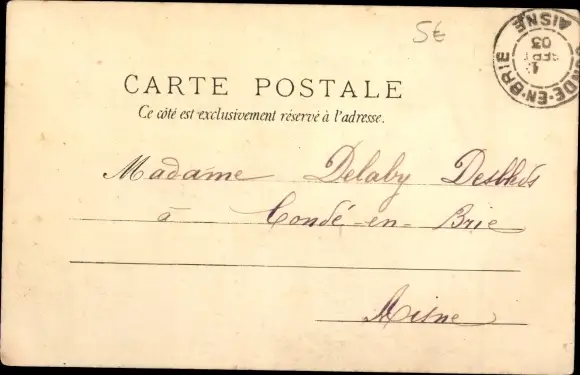 5€
CONDÉ-EN-BRIE
AISNE
SEPT
03
CARTE POSTALE
Ce côté est exclusivement réservé à l'adresse.
Madame Delaby
à Condé-en-Brie
Aisne